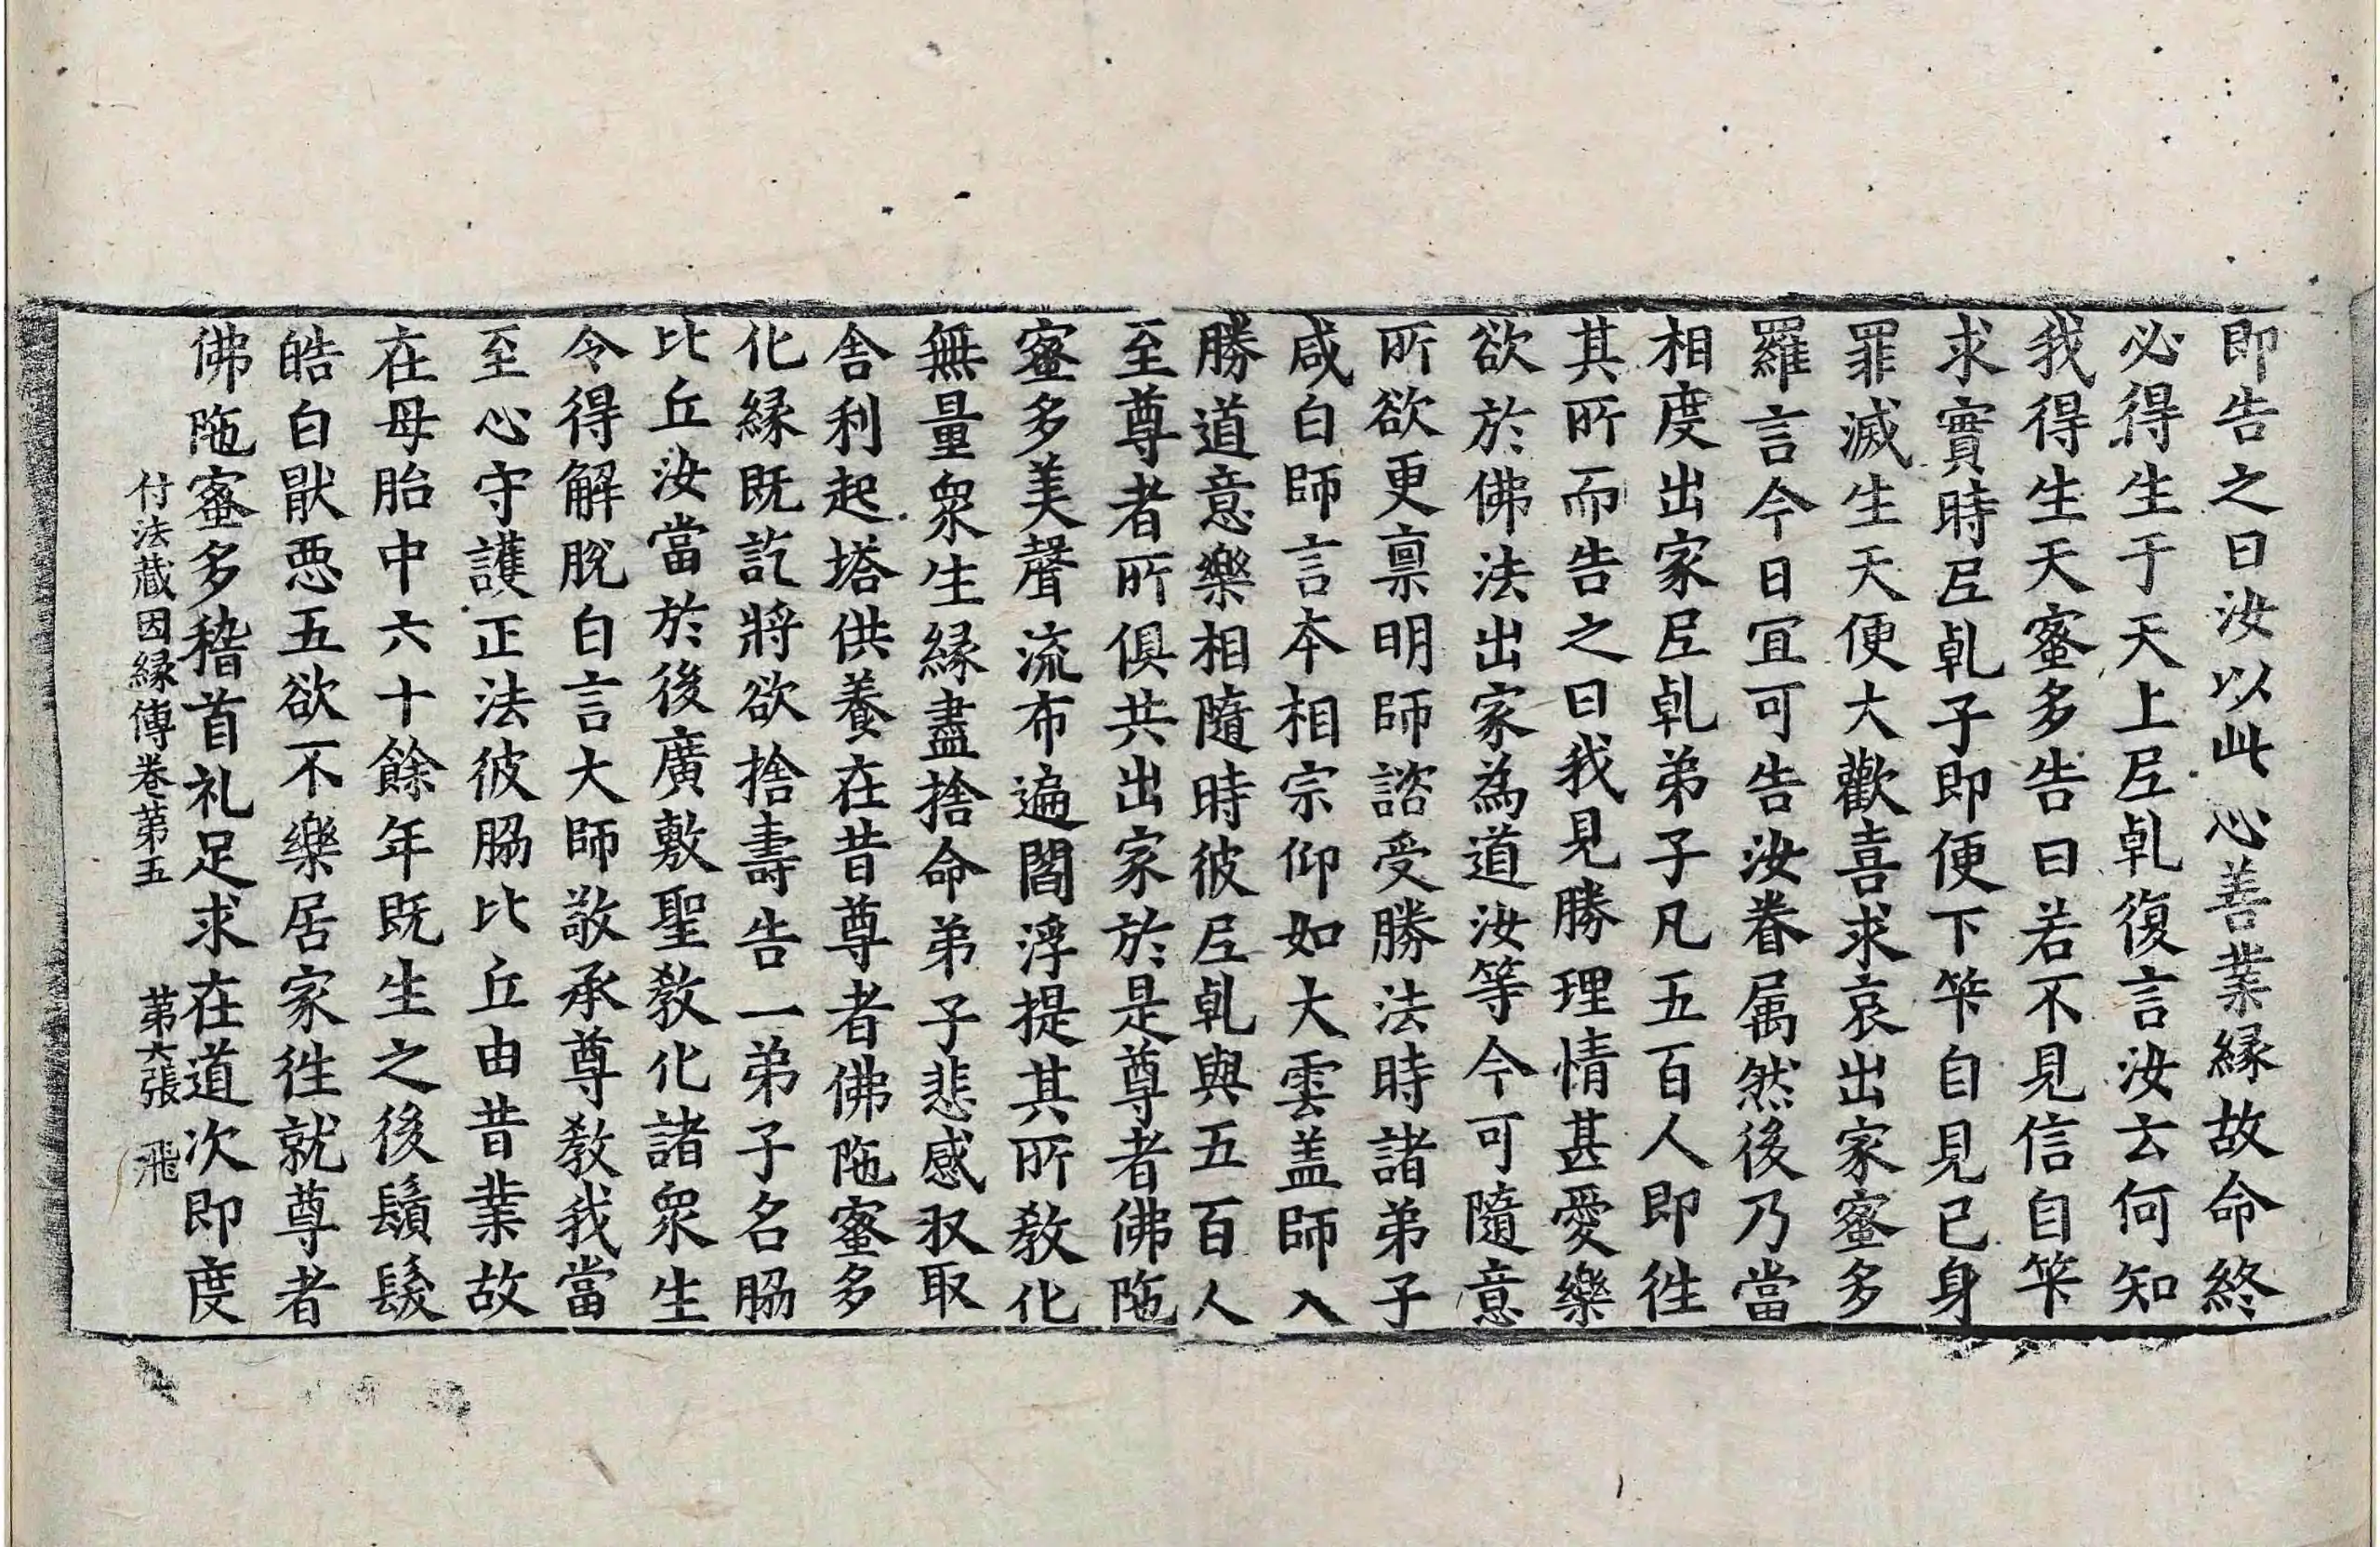 即告之曰汝以此心善業縁故命終
必得生于天上𡰱乹復言汝云何知
我得生天蜜多告曰若不見信自筭
求實時𡰱乹子即便下筭自見已身
罪滅生天便大歡喜求哀出家蜜多
羅言今日冝可告汝眷属然後乃當
相度出家𡰱乹弟子凡五百人即徃
其所而告之曰我見勝理情甚愛樂
欲於佛法出家為道汝等今可隨意
所欲更禀明師諮受勝法時諸弟子
咸白師言夲相宗仰如大雲盖師入
勝道意樂相隨時彼𡰱乹與五百人
至尊者所俱共出家於是尊者佛陁
蜜多美聲流布遍閻浮提其所教化
無量衆生縁盡捨命弟子悲感収取
舎利起塔供養在昔尊者佛陁蜜多
化縁既訖將欲捨壽告一弟子名脇
比丘汝當於後廣敷聖教化諸衆生
令得解脫白言大師敬承尊教我當
至心守護正法彼脇比丘由昔業故
在母胎中六十餘年既生之後鬚髮
皓白猒惡五欲不樂居家徃就尊者
佛陁蜜多稽首礼足求在道次即度
付法藏因縁傳卷第五　第六張　飛